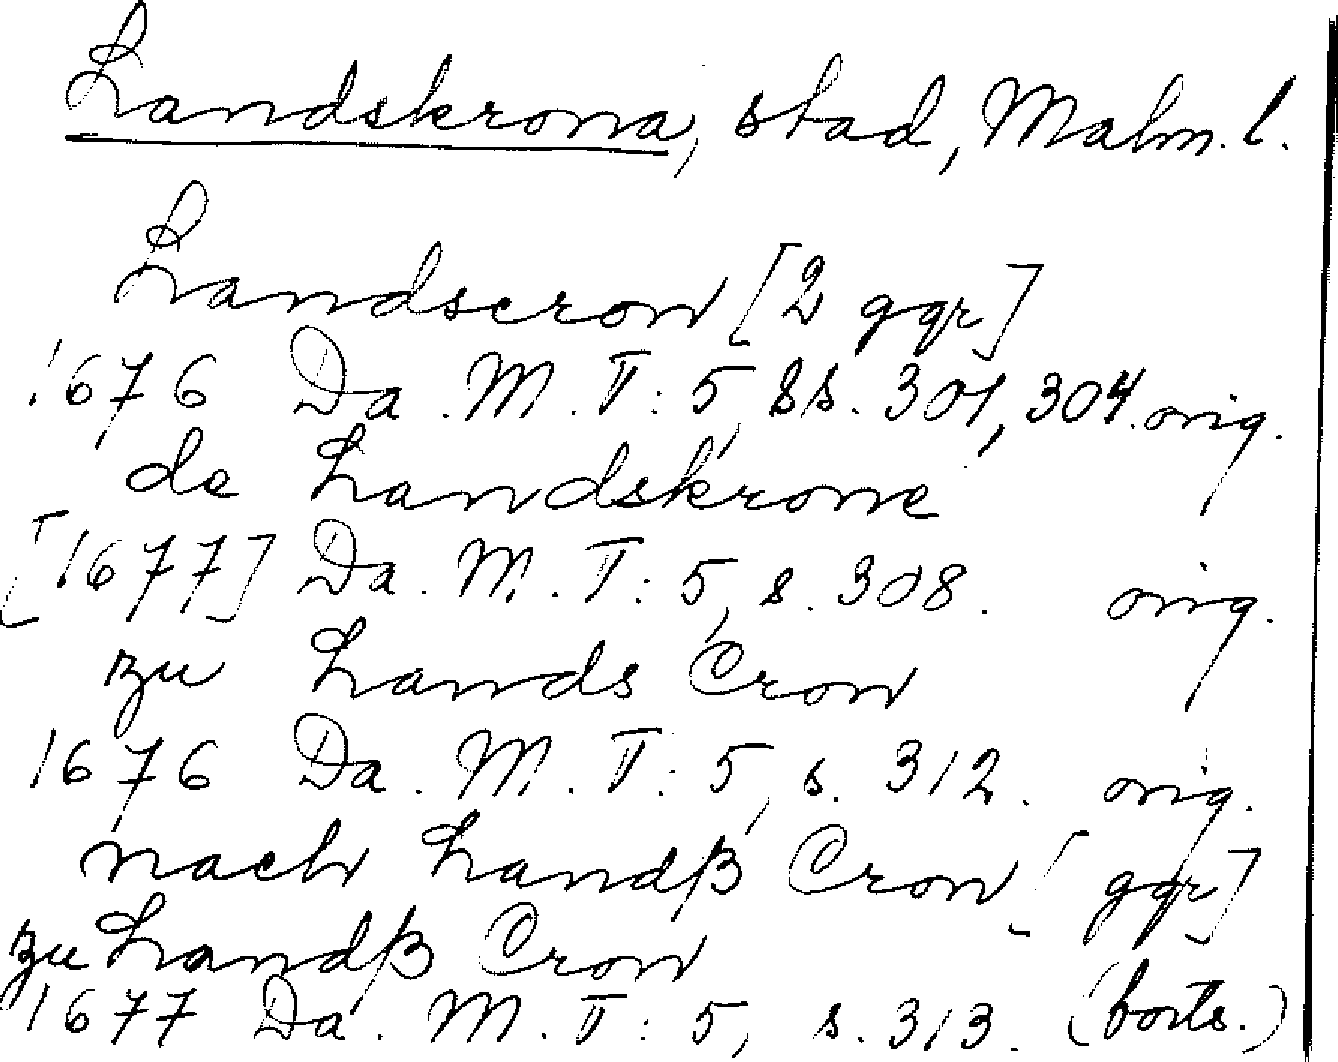 Landskrona, stad, Malm. l.
Landscron [2 ggr]
1676 Da. M. T: 5, ss. 301, 304. orig.
de Landskrone
[1677] Da. M. T: 5, s. 308. orig.
zu Lands Cron
1676 Da. M. T: 5, s. 312. orig.
nach Landß Cron [ ggr]
zu Landß Cron
1677 Da. M. T: 5, s. 313. (forts.)